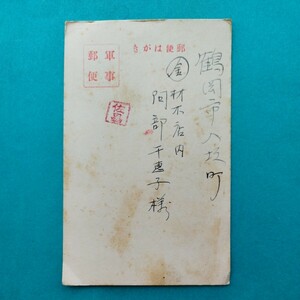 郵便はがき
軍事
郵便
鶴岡市八坂町
金 材木店内
阿部千恵子様